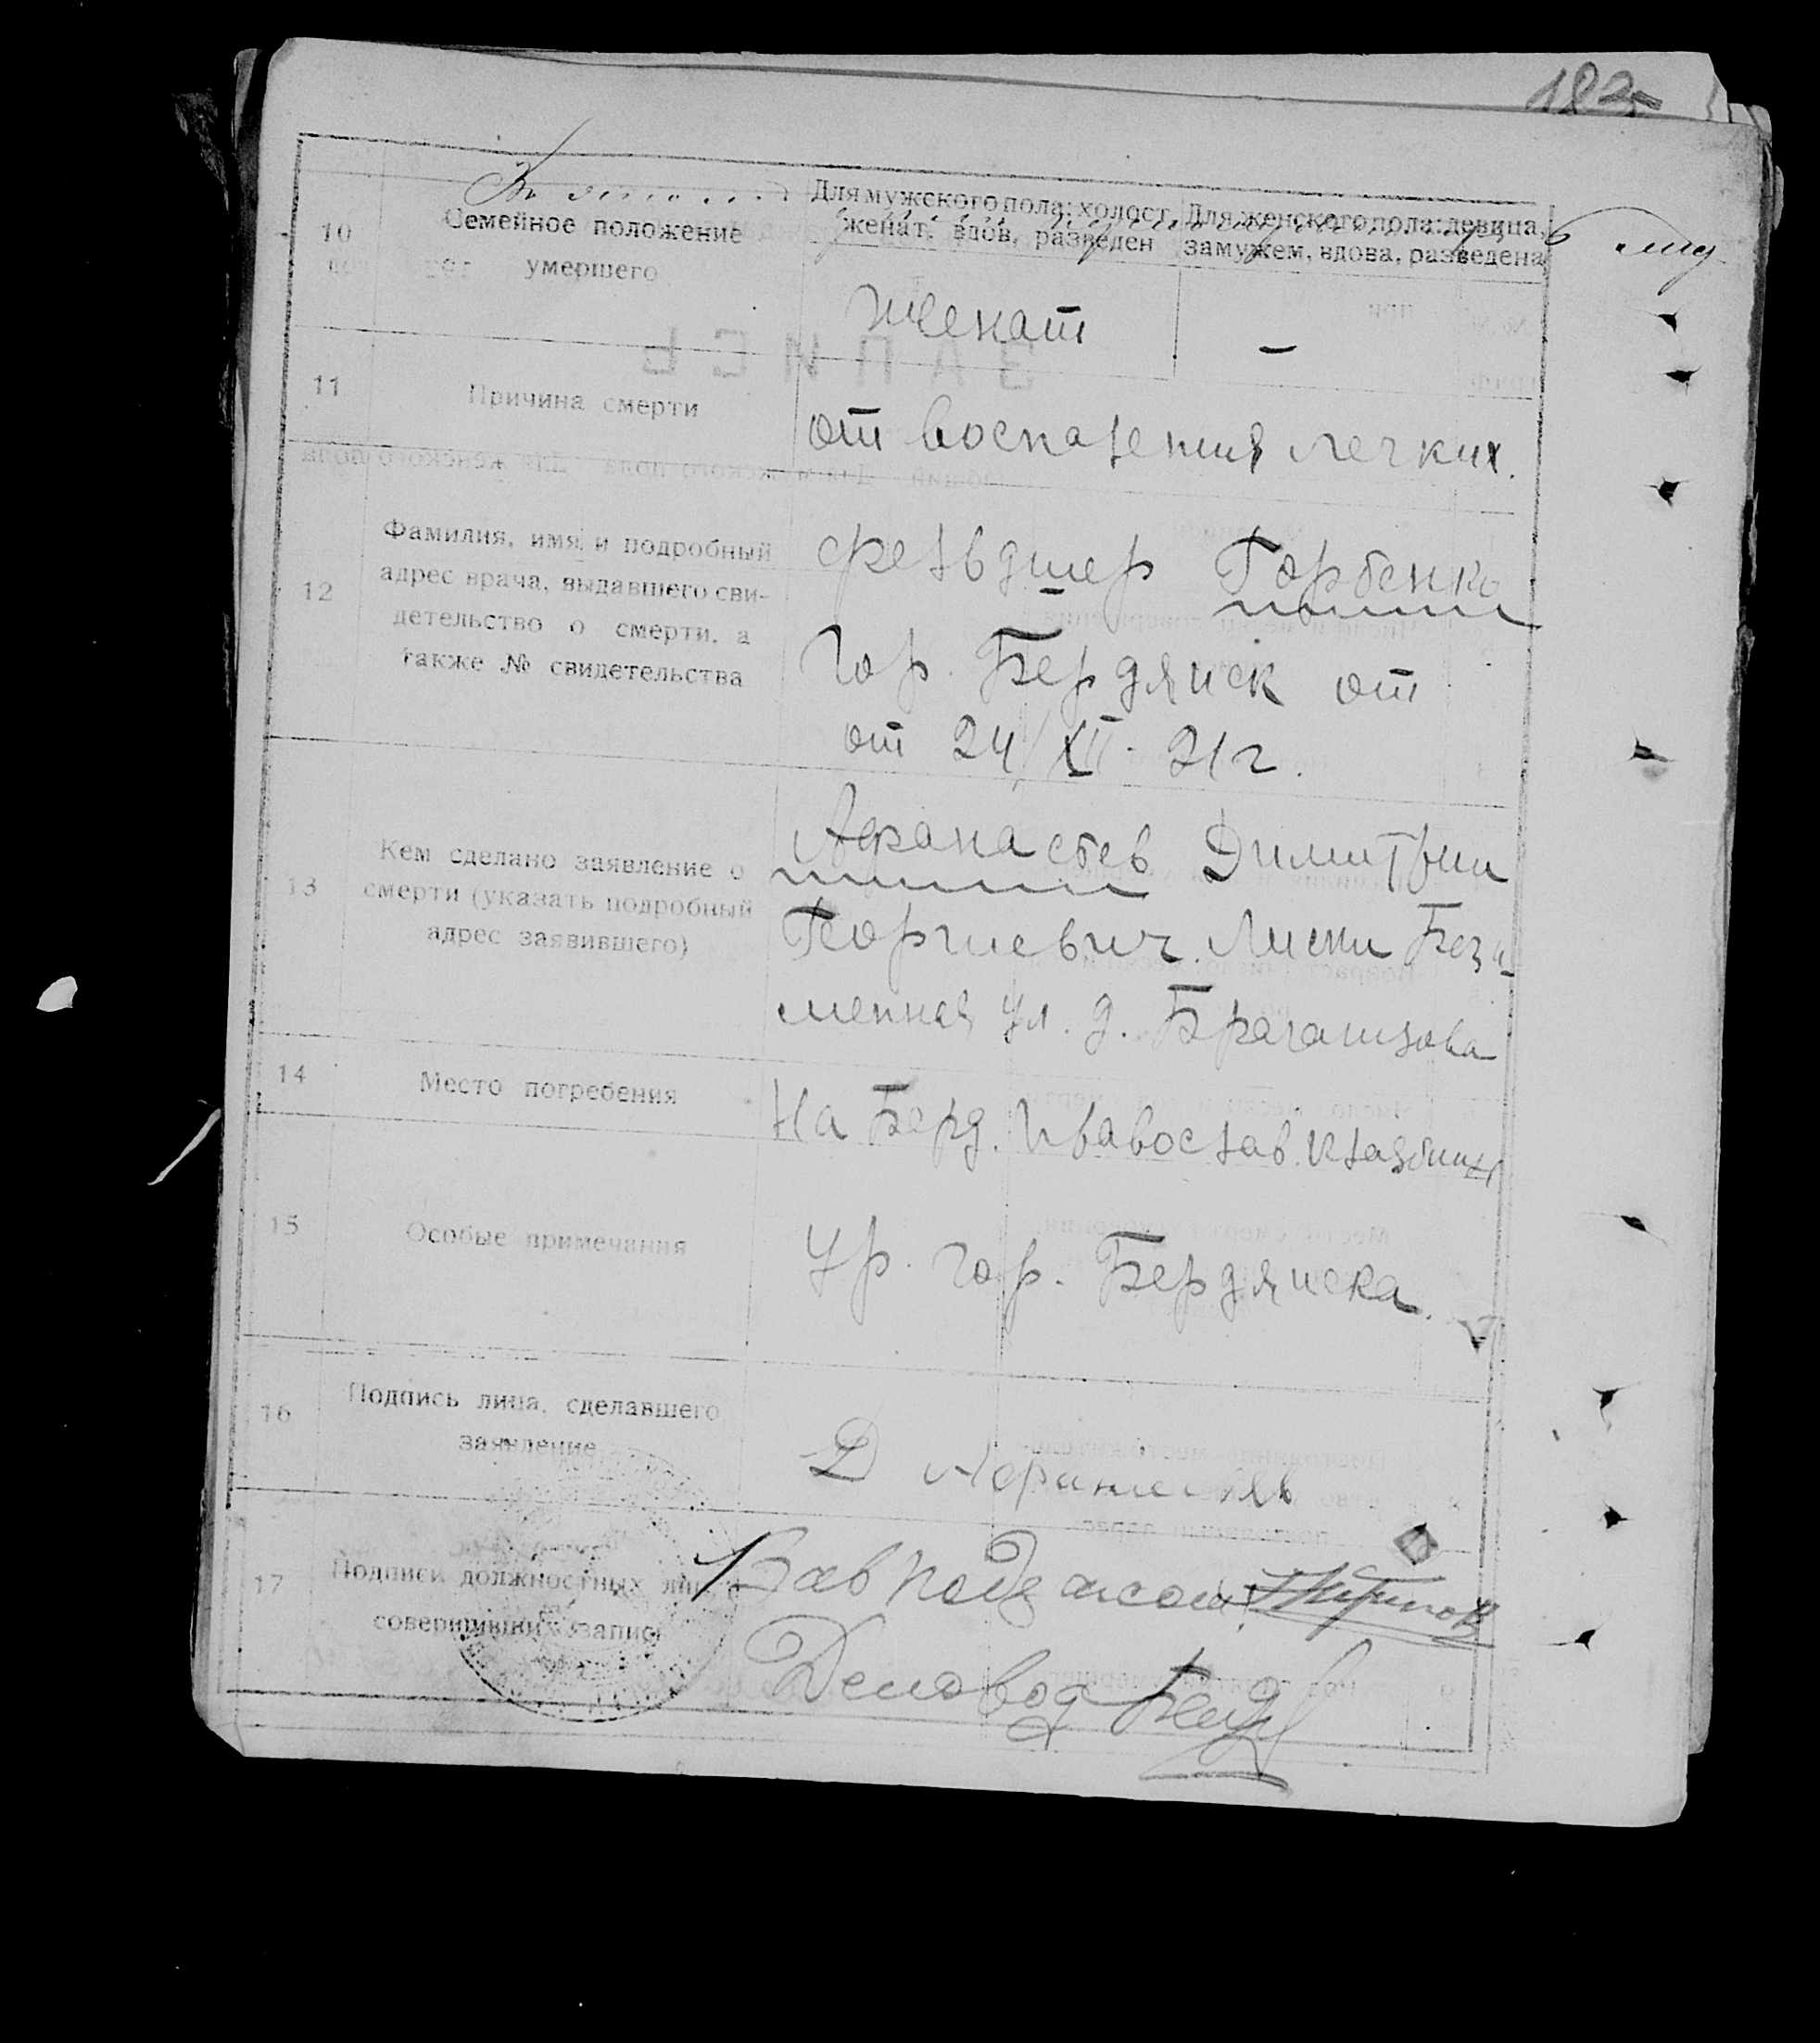 10
Семейное положение
умершего
Для мужского пола: холост,
женат, вдов, разведен
Для женского пола: девица,
замужем, вдова, разведена
Женат
—
11
Причина смерти
от воспаления легких.
12
Фамилия, имя и подробный
адрес врача, выдавшего сви-
детельство о смерти, а
также № свидетельства
фельдшер Горбенко
гор. Бердянск от
от 24/XII - 21 г.
13
Кем сделано заявление о
смерти (указать подробный
адрес заявившего)
Афанасьев Димитрии
Георгиевич. Лиски Безы-
менная ул. д.
14
Место погребения
На Берд. Православ. Кладбищи
15
Особые примечания
Ур. гор. Бердянска.
16
Подпись лица, сделавшего
заявление
Д Афанасьев
17
Подписи должностных лиц,
совершивших запись
Зав подъ
Деловод